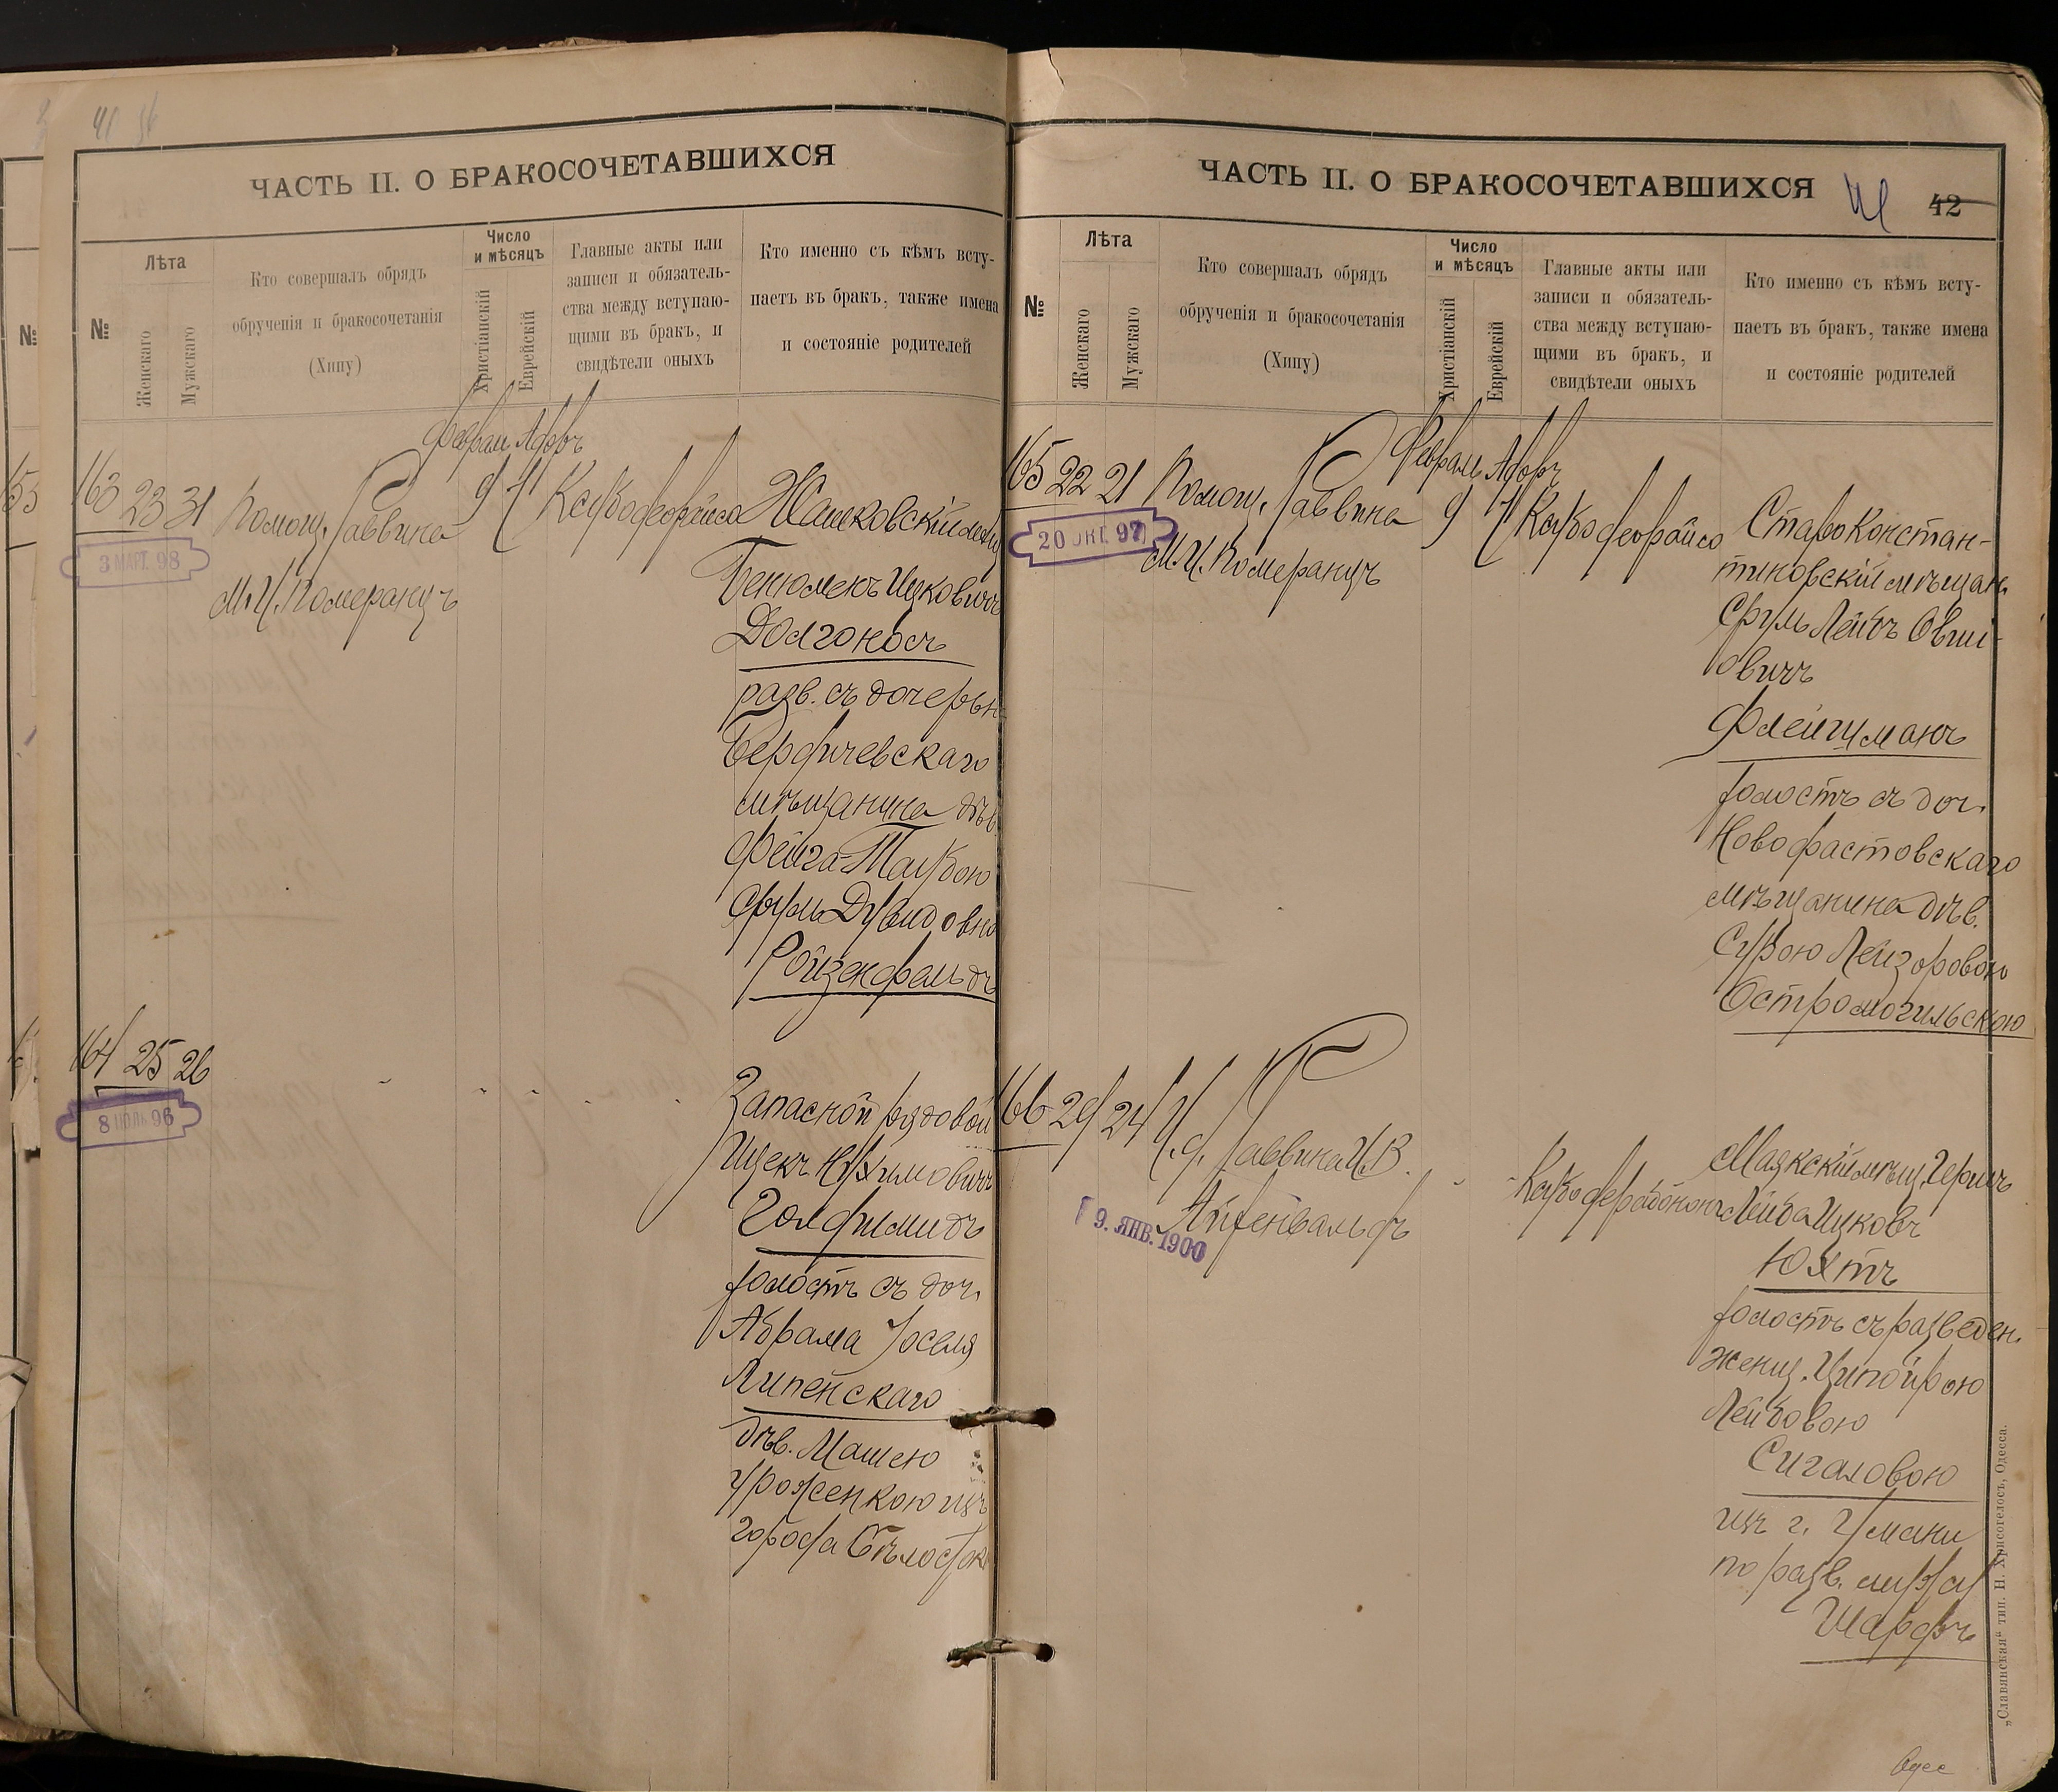 41
ЧАСТЬ II. О БРАКОСОЧЕТАВШИХСЯ
№
Лѣта
Женскаго
Мужскаго
Кто совершалъ обрядъ
обрученія и бракосочетанія
(Хипу)
Число
и мѣсяцъ
Христіанскій
Еврейскій
Главные акты или
записи и обязатель-
ства между вступаю-
щими въ бракъ, и
свидѣтели оныхъ
Кто именно съ кѣмъ всту-
паетъ въ бракъ, также имена
и состояніе родителей
Февраль Адаръ
163 23 31 Помощ. Раввина 9 7
3 МАРТ. 98
М.И. Померанцъ
Жашковскій мѣщ
Бенюменъ Ицковичъ
Долгоносъ
разв. съ дочерью
Бердичевскаго
мѣщанина дѣв.
Фейга-Таубою
Сруль Дувидовна
Ройзенфельдъ
164 25 26
8 ІЮЛЬ 96
Запасной рядовой
Ицекъ Юхимовичъ
Голдшмидъ
холостъ съ доч.
Абрама Іоселя
Липенскаго
дѣв. Машею
уроженкою изъ
города Бѣлосток
ЧАСТЬ II. О БРАКОСОЧЕТАВШИХСЯ
42
№
Лѣта
Женскаго
Мужскаго
Кто совершалъ обрядъ
обрученія и бракосочетанія
(Хипу)
Число
и мѣсяцъ
Христіанскій
Еврейскій
Главные акты или
записи и обязатель-
ства между вступаю-
щими въ бракъ, и
свидѣтели оныхъ
Кто именно съ кѣмъ всту-
паетъ въ бракъ, также имена
и состояніе родителей
Февраль Адаръ
165 22 21 Помощ. Раввина 9 7
20 ОКТ. 97
М.И. Померанцъ
Староконстан-
тиновскій мѣщан.
Сруль Лейбъ Овші-
овичъ
Флейцманъ
холостъ съ доч.
Новофастовскаго
мѣщанина дѣв.
Сурою Лейзоровою
Остромогильскою
166 29 24 И.д. Раввина И.В.
Айзенвальдъ
9. ЯНВ. 1900
Маякскій мѣщ. Герш
Лейба Ицковъ
Юхтъ
холостъ съ разведен.
женщ. Ципойрою
Лейбовою
Сигаловою
изъ г. Умани
по разв. мужу
Шарфъ
„Славянская“ тип. Н. Хрисогелосъ, Одесса.